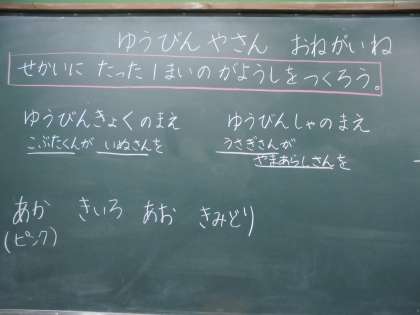 ゆうびんやさん おねがいね
せかいに たった1まいの がようしを つくろう。
ゆうびんきょくのまえ
こぶたくんが いぬさんを
ゆうびんしゃのまえ
うさぎさんが
やまあらしさんを
あか きいろ あお きみどり
(ピンク)